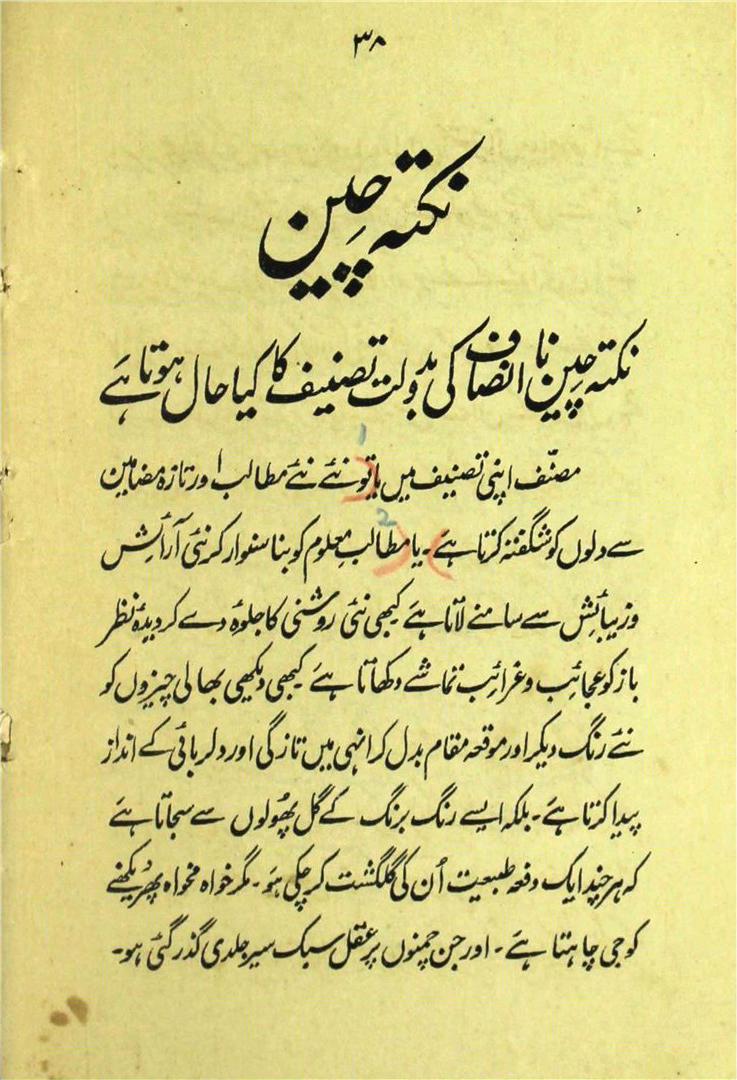 ۳۸
نکتہ چین
نکتہ چین نا انصاف کی بدولت تصنیف کا کیا حال ہوتا ہے
1
مصنّف اپنی تصنیف میں یا تو نئے نئے مطالب اور تازہ مضامین
2
سے دلوں کو شگفتہ کرتا ہے۔ یا مطالب معلوم کو بنا سنوار کر نئی آرائش
و زیبائش سے سامنے لاتا ہے کبھی نئی روشنی کا جلوہ دے کر دیدۂ نظر
باز کو عجائب و غرائب تماشے دکھاتا ہے کبھی دیکھی بھالی چیزوں کو
نئے رنگ دیکر اور موقعہ مقام بدل کر انہی میں تازگی اور دلربائی کے انداز
پیدا کرتا ہے۔ بلکہ ایسے رنگ برنگ کے گل پھُولوں سے سجاتا ہے
کہ ہر چند ایک دفعہ طبیعت اُن کی گلگشت کر چکی ہو۔ مگر خواہ مخواہ پھر دیکھنے
کو جی چاہتا ہے۔ اور جن چمنوں پر عقل سبک سیر جلدی گذر گئی ہو۔